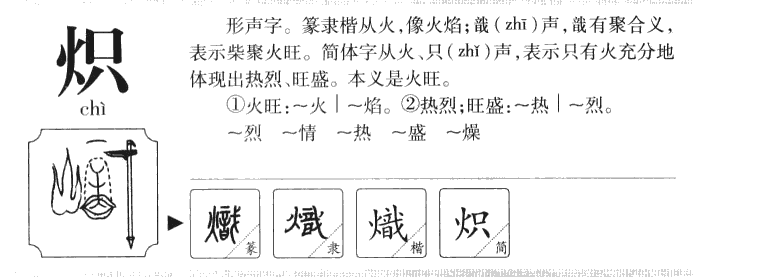 炽
chì
形声字。篆隶楷从火,像火焰;戠(zhī)声,戠有聚合义,
表示柴聚火旺。简体字从火、只(zhǐ)声,表示只有火充分地
体现出热烈、旺盛。本义是火旺。
①火旺:~火|~焰。②热烈;旺盛:~热|~烈。
~烈 ~情 ~热 ~盛 ~燥
熾 篆
熾 隶
熾 楷
炽 简